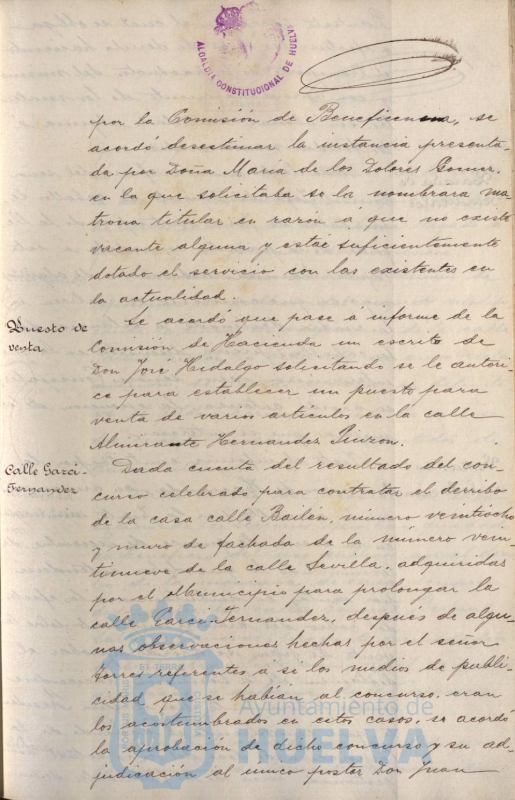 ALCALDIA CONSTITUCIONAL DE HUELVA
por la Comisión de Beneficencia, se
acordó desestimar la instancia presenta-
da por Doña Maria de los Dolores Gomez,
en la que solicitaba se la nombrara ma-
trona titular en razón á que no existe
vacante alguna y estar suficientemente
dotado el servicio con las existentes en
la actualidad.
Puesto de
venta
Se acordó que pase á informe de la
Comisión de Hacienda un escrito de
Don José Hidalgo solicitando se le autori-
ce para establecer un puesto para
venta de varios artículos en la calle
Almirante Hernandez Pinzon.
Calle Garci-
Fernandez
Dada cuenta del resultado del con-
curso celebrado para contratar el derribo
de la casa calle Bailén, número veintiocho
y muro de fachada de la número vein-
tinueve de la calle Sevilla, adquiridas
por el Municipio para prolongar la
calle Garci-Fernandez, después de algu-
nas observaciones hechas por el señor
Torres referentes á si los medios de publi-
cidad que se habían al concurso, eran
los acostumbrados en estos casos, se acordó
la aprobación de dicho concurso y su ad-
judicación al único postor Don Juan
Ayuntamiento de
HUELVA